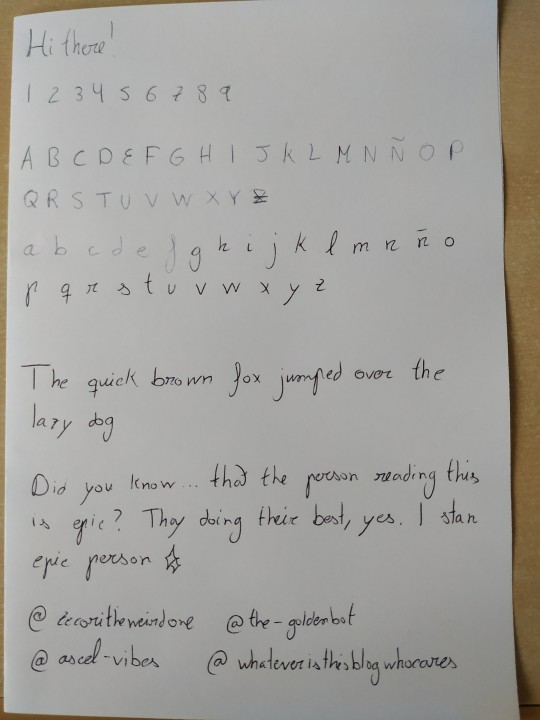 Hi there!
1 2 3 4 5 6 7 8 9
A B C D E F G H I J K L M N Ñ O P
Q R S T U V W X Y Z
a b c d e f g h i j k l m n ñ o
p q r s t u v w x y z
The quick brown fox jumped over the
lazy dog
Did you know... that the person reading this
is epic? They doing their best, yes. I stan
epic person ☆
@the-goldenbot
@ascel-vibes @whateveristhisblogwhocares